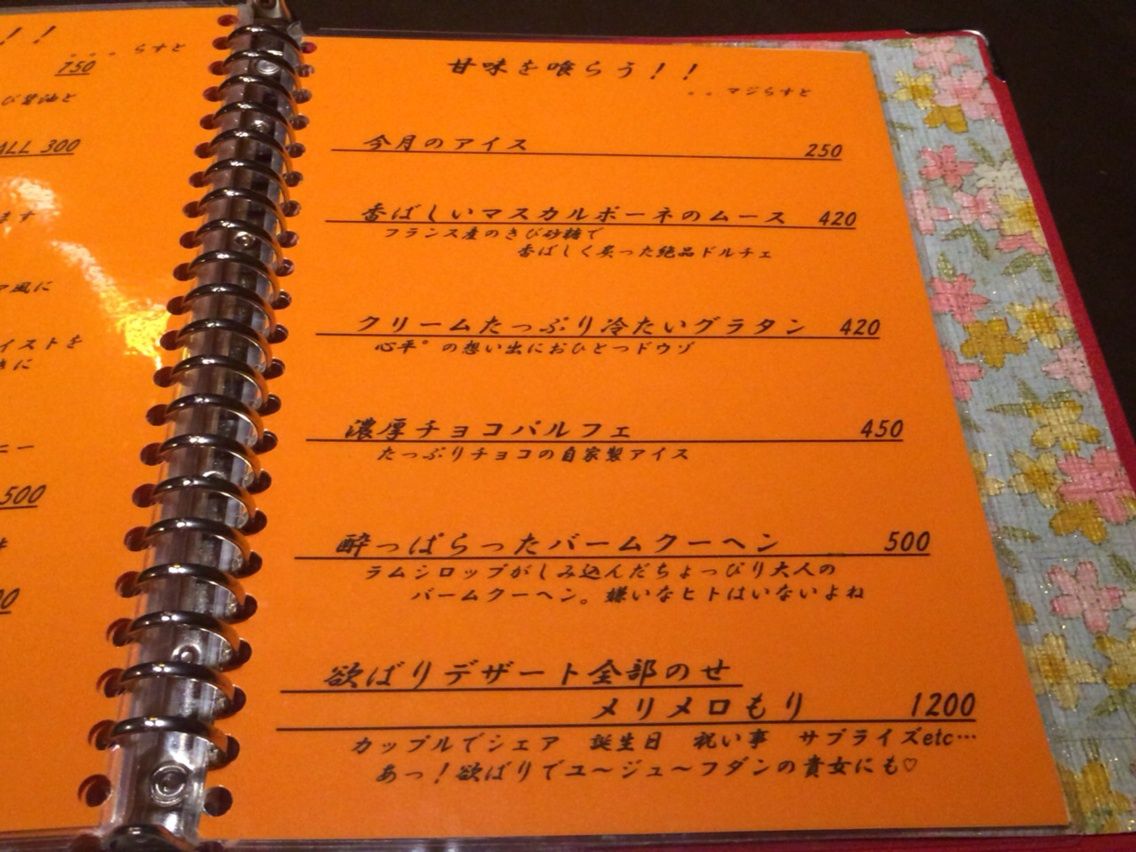 ！！
。。。らすと
750
び醤油と
ALL 300
ます
風に
イストを
きに
ニー
500
甘味を喰らう！！
。。マジらすと
今月のアイス 250
香ばしいマスカルポーネのムース 420
フランス産のきび砂糖で
香ばしく炙った絶品ドルチェ
クリームたっぷり冷たいグラタン 420
心平°の想い出におひとつドウゾ
濃厚チョコパルフェ 450
たっぷりチョコの自家製アイス
酔っぱらったバームクーヘン 500
ラムシロップがしみ込んだちょっぴり大人の
バームクーヘン。嫌いなヒトはいないよね
欲ばりデザート全部のせ
メリメロもり 1200
カップルでシェア 誕生日 祝い事 サプライズetc…
あっ！欲ばりでユ～ジュ～フダンの貴女にも♡